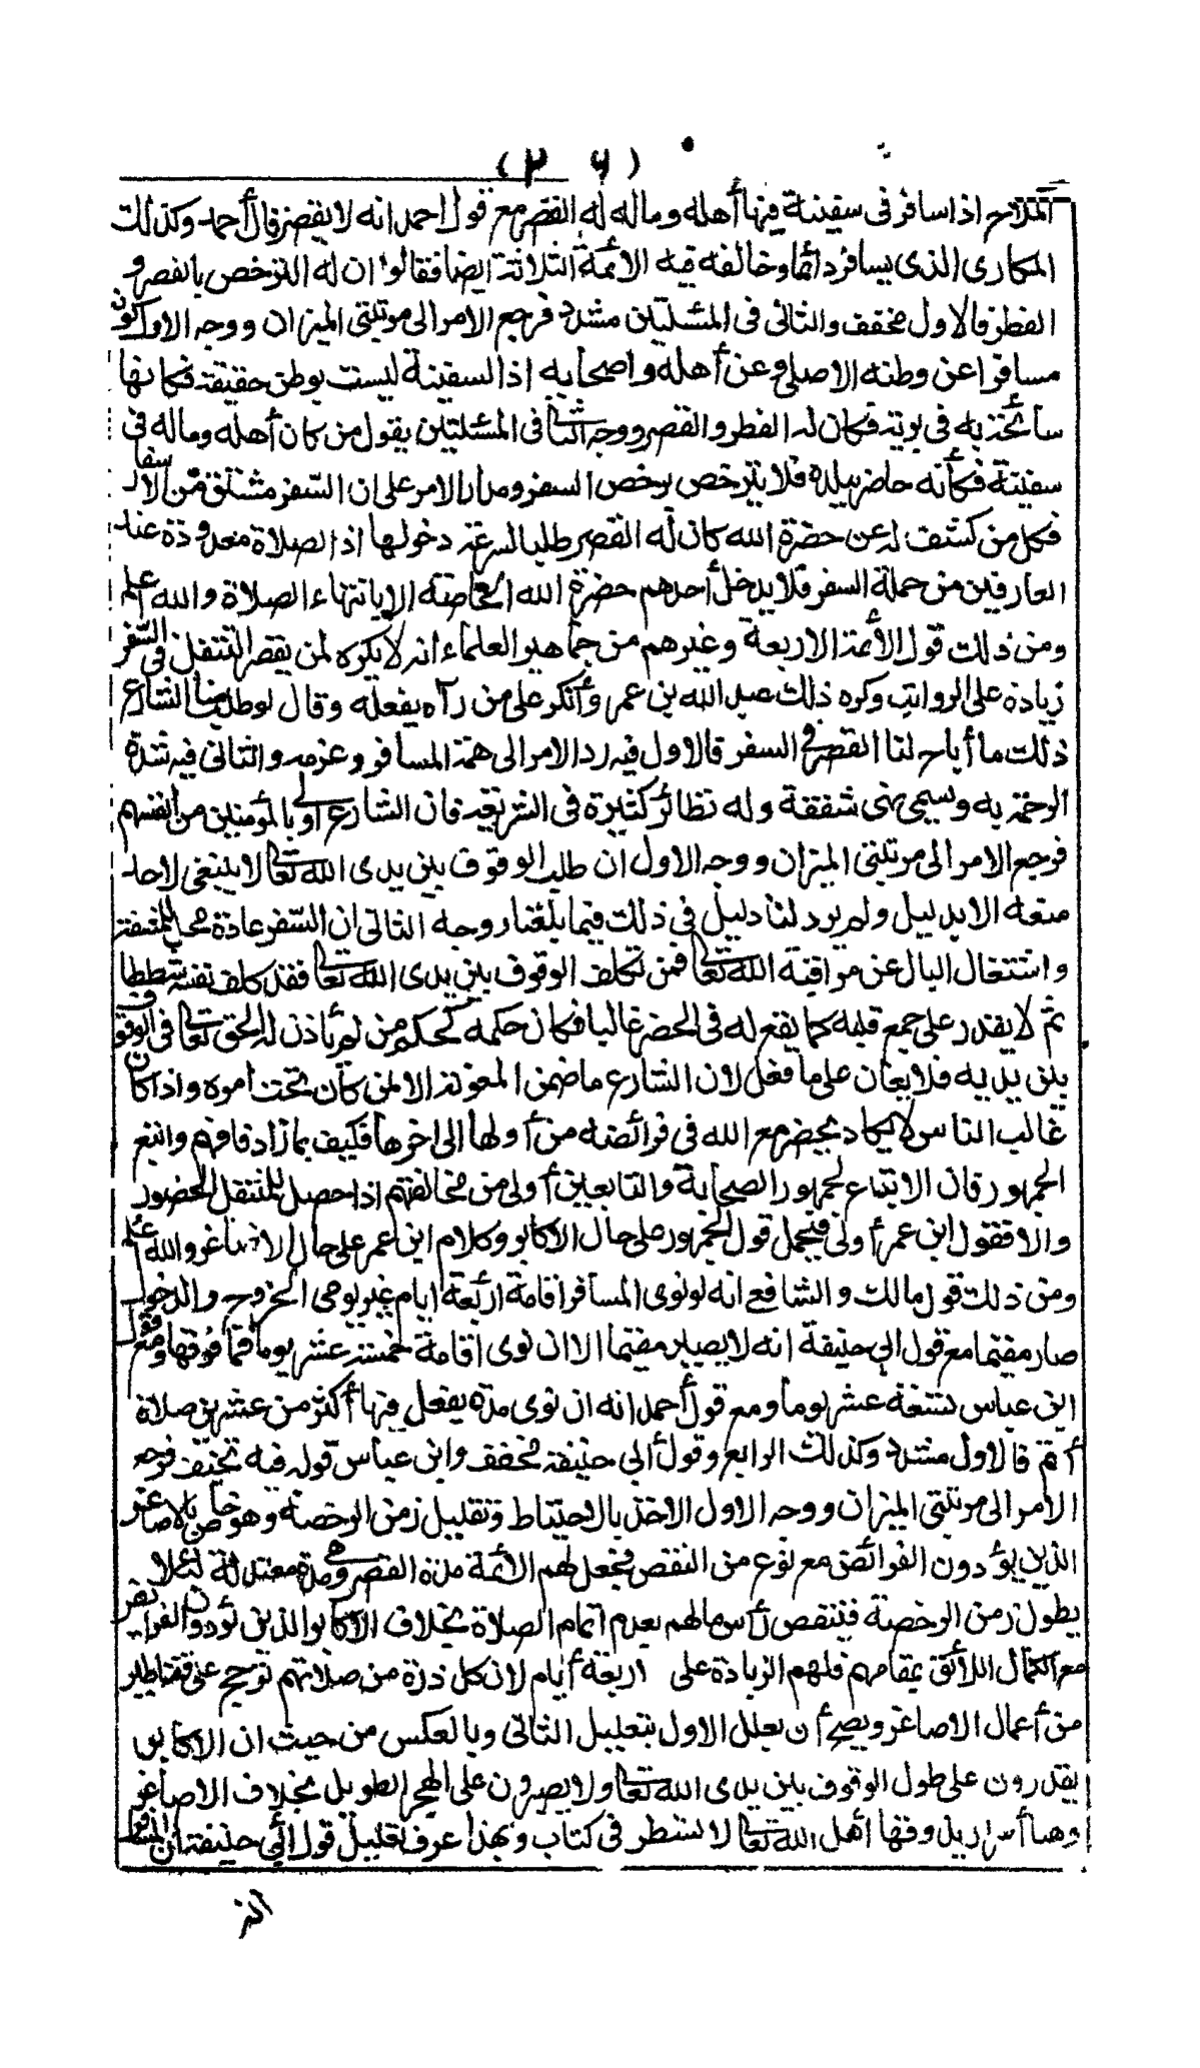 (٢٦)
الملاح اذا سافر فى سفينة فيها أهله وماله له القصر مع قول احمد انه لا يقصر قال أحمد وكذلك
المكارى الذى يسافر دائما وخالفه فيه الأئمة الثلاثة ايضا فقالوا ان له الترخص بالقصر و
الفطر فالاول مخفف والثانى فى المسئلتين مشدد فرجع الامر الى مرتبتى الميزان ووجه الاول كون
مسافرا عن وطنه الاصلى وعن أهله واصحابه اذ السفينة ليست بوطن حقيقة فكانها
سائحة به فى برية فكان له الفطر والقصر ووجه الثانى فى المسئلتين يقول من كان أهله وماله فى
سفينة فكأنه حاضر ببلده فلا يترخص برخص السفر ومدار الامر على ان السفر مشتق من الاسفار
فكل من كشف له عن حضرة الله كان له القصر طلبا لسرعة دخولها اذ الصلاة معدودة عند
العارفين من جملة السفر فلا يدخل أحدهم حضرة الله الخاصة الا بانتهاء الصلاة والله اعلم
ومن ذلك قول الأئمة الاربعة وغيرهم من جماهير العلماء انه لا يكره لمن يقصر التنفل فى السفر
زيادة على الرواتب وكره ذلك عبد الله بن عمر وأنكر على من رآه يفعله وقال لو طلب منا الشارع
ذلك ما أباح لنا القصر فى السفر فالاول فيه رد الامر الى همة المسافر وعزمه والثانى فيه شدة
الرحمة به ويسمى نهى شفقة وله نظائر كثيرة فى الشريعة فان الشارع أولى بالمؤمنين من انفسهم
فرجع الامر الى مرتبتى الميزان ووجه الاول ان طلب الوقوف بين يدى الله تعالى لا ينبغى لاحد
منعه الا بدليل ولم يرد لنا دليل فى ذلك فيما بلغنا ووجه الثانى ان السفر عادة محل للمشقة
واشتغال البال عن مراقبة الله تعالى فمن تكلف الوقوف بين يدى الله تعالى فقد كلف نفسه شططا
ثم لا يقدر على جمع قلبه كما يقع له فى الحضر غالبا فكان حكمه كحكم من لم يأذن له الحق تعالى فى الوقوف
بين يديه فلا يعان على ما فعل لان الشارع ما ضمن المعونة الا لمن كان تحت امره واذا كان
غالب الناس لا يكاد يحضر مع الله فى فرائضه من أولها الى اخرها فكيف بما زاد فافهم واتبع
الجمهور فان الاتباع لجمهور الصحابة والتابعين أولى من مخالفتهم اذا حصل للمتنفل الحضور
والا فقول ابن عمر أولى فيحمل قول الجمهور على حال الاكابر وكلام ابن عمر على حال الاصاغر والله اعلم
ومن ذلك قول مالك والشافع انه لو نوى المسافر اقامة اربعة ايام غير يومى الخروج والدخول
صار مقيما مع قول ابى حنيفة انه لا يصير مقيما الا ان نوى اقامة خمسة عشر يوما فما فوقها ومع قول
ابن عباس تسعة عشر يوما ومع قول أحمد انه ان نوى مدة يفعل فيها أكثر من عشرين صلاة
أتم فالاول مشدد وكذلك الرابع وقول أبى حنيفة مخفف وابن عباس قوله فيه تخفيف فرجع
الامر الى مرتبتى الميزان ووجه الاول الاخذ بالاحتياط وتقليل زمن الرخصة وهو خاص بالاصاغر
الذين يؤدون الفرائض مع نوع من النقص فجعل لهم الأئمة مدة القصر وهى مدة معتدلة لئلا
يطول زمن الرخصة فينقص رأس مالهم بعدم اتمام الصلاة بخلاف الاكابر الذين يؤدون الفرائض
مع الكمال اللائق بمقامهم فلهم الزيادة على اربعة أيام لان كل ذرة من صلاتهم ترجح على قناطير
من أعمال الاصاغر ويصح أن يعلل الاول بتعليل الثانى وبالعكس من حيث ان الاكابر
يقدرون على طول الوقوف بين يدى الله تعالى ولا يصبرون على الهجر الطويل بخلاف الاصاغر
وهنا أسرار يذوقها أهل الله تعالى لا تسطر فى كتاب وبهذا عرف تعليل قول أبى حنيفة ان المسافر